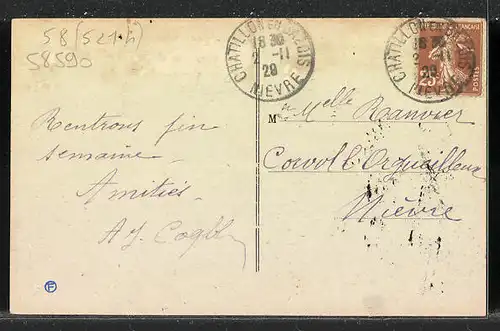 58 (521-h)
58590
CHATILLON EN BAZOIS
18 30
2 -11
29
NIEVRE
CHATILLON EN BAZOIS
18 30
2 -11
29
NIEVRE
FRANÇAISE
POSTES
25
Rentrons fin
semaine
Amitiés
M Melle Ranvier
Corvol l'Orgueilleux
Nièvre
F